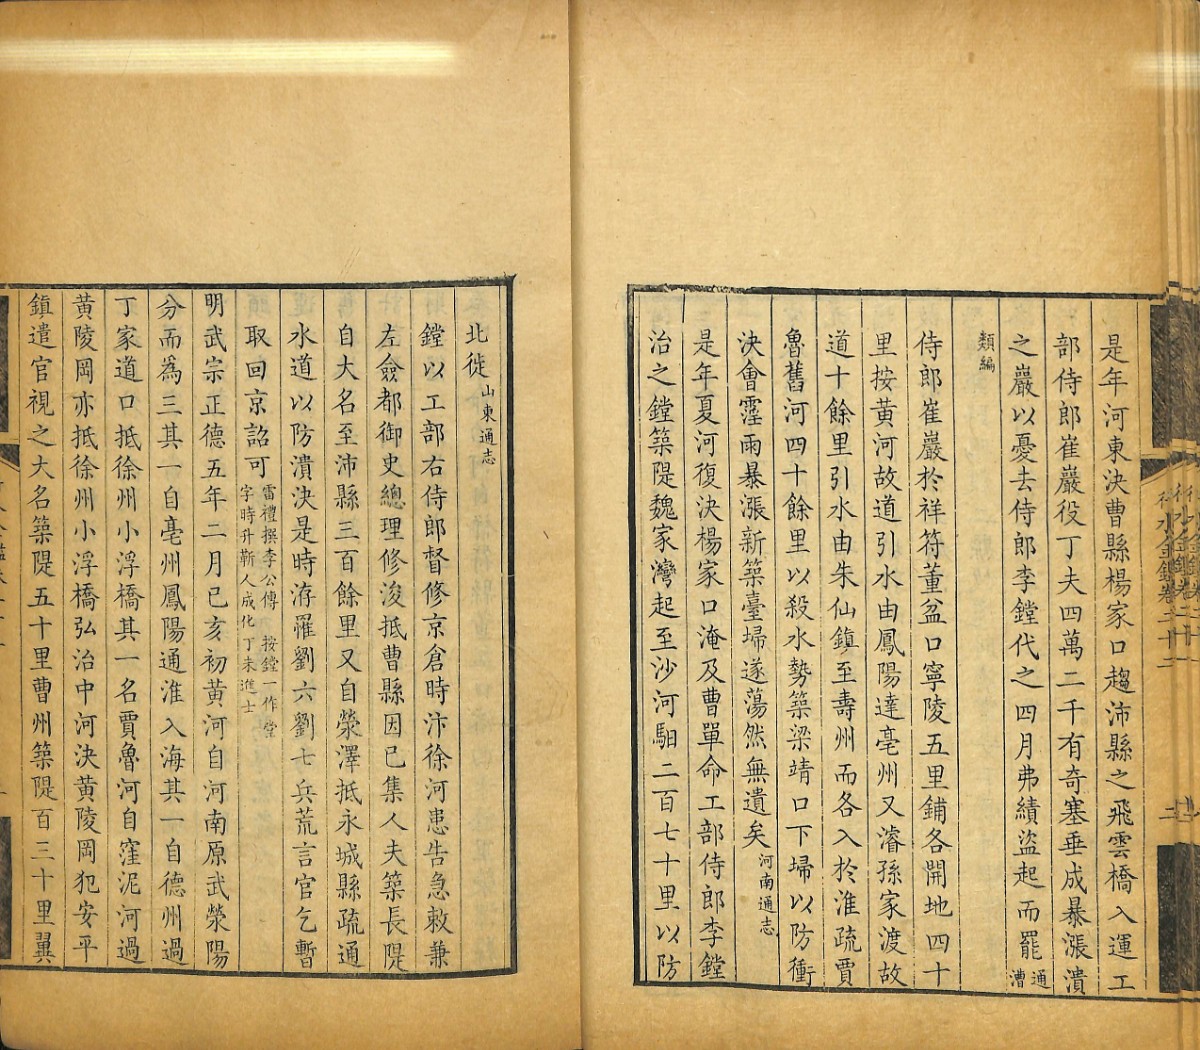 是年河東決曹縣楊家口趨沛縣之飛雲橋入運工
部侍郎崔巖役丁夫四萬二千有奇塞垂成暴漲潰
之巖以憂去侍郎李鏜代之四月弗績盜起而罷通漕
類編
侍郎崔巖於祥符董盆口寧陵五里鋪各開地四十
里按黃河故道引水由鳳陽達亳州又濬孫家渡故
道十餘里引水由朱仙鎮至壽州而各入於淮疏賈
魯舊河四十餘里以殺水勢築梁靖口下埽以防衝
決會霪雨暴漲新築臺埽遂蕩然無遺矣河南通志
是年夏河復決楊家口淹及曹單命工部侍郎李鏜
治之鏜築隄魏家灣起至沙河馹二百七十里以防
北徙山東通志
鏜以工部右侍郎督修京倉時汴徐河患告急敕兼
左僉都御史總理修浚抵曹縣因已集人夫築長隄
自大名至沛縣三百餘里又自滎澤抵永城縣疏通
水道以防潰決是時洊罹劉六劉七兵荒言官乞暫
取回京詔可雷禮撰李公傳 按鏜一作堂字時升蘄人成化丁未進士
明武宗正德五年二月己亥初黃河自河南原武滎陽
分而爲三其一自亳州鳳陽通淮入海其一自德州過
丁家道口抵徐州小浮橋其一名賈魯河自窪泥河過
黃陵岡亦抵徐州小浮橋弘治中河決黃陵岡犯安平
鎮遣官視之大名築隄五十里曹州築隄百三十里翼
行水金鑑卷二十二